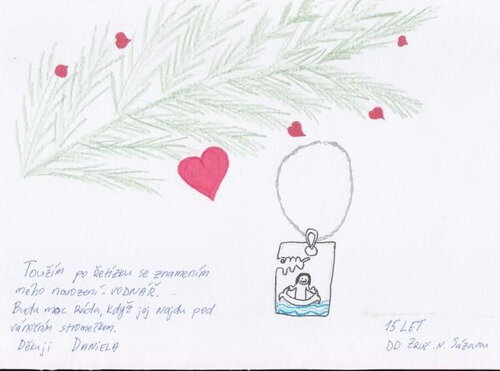 Toužím po řetízku se znamením
mého narození - VODNÁŘ.
Budu moc ráda, když jej najdu pod
vánočním stromečkem.
Děkuji DANIELA
15 LET
DD ZRUČ N. Sázavou